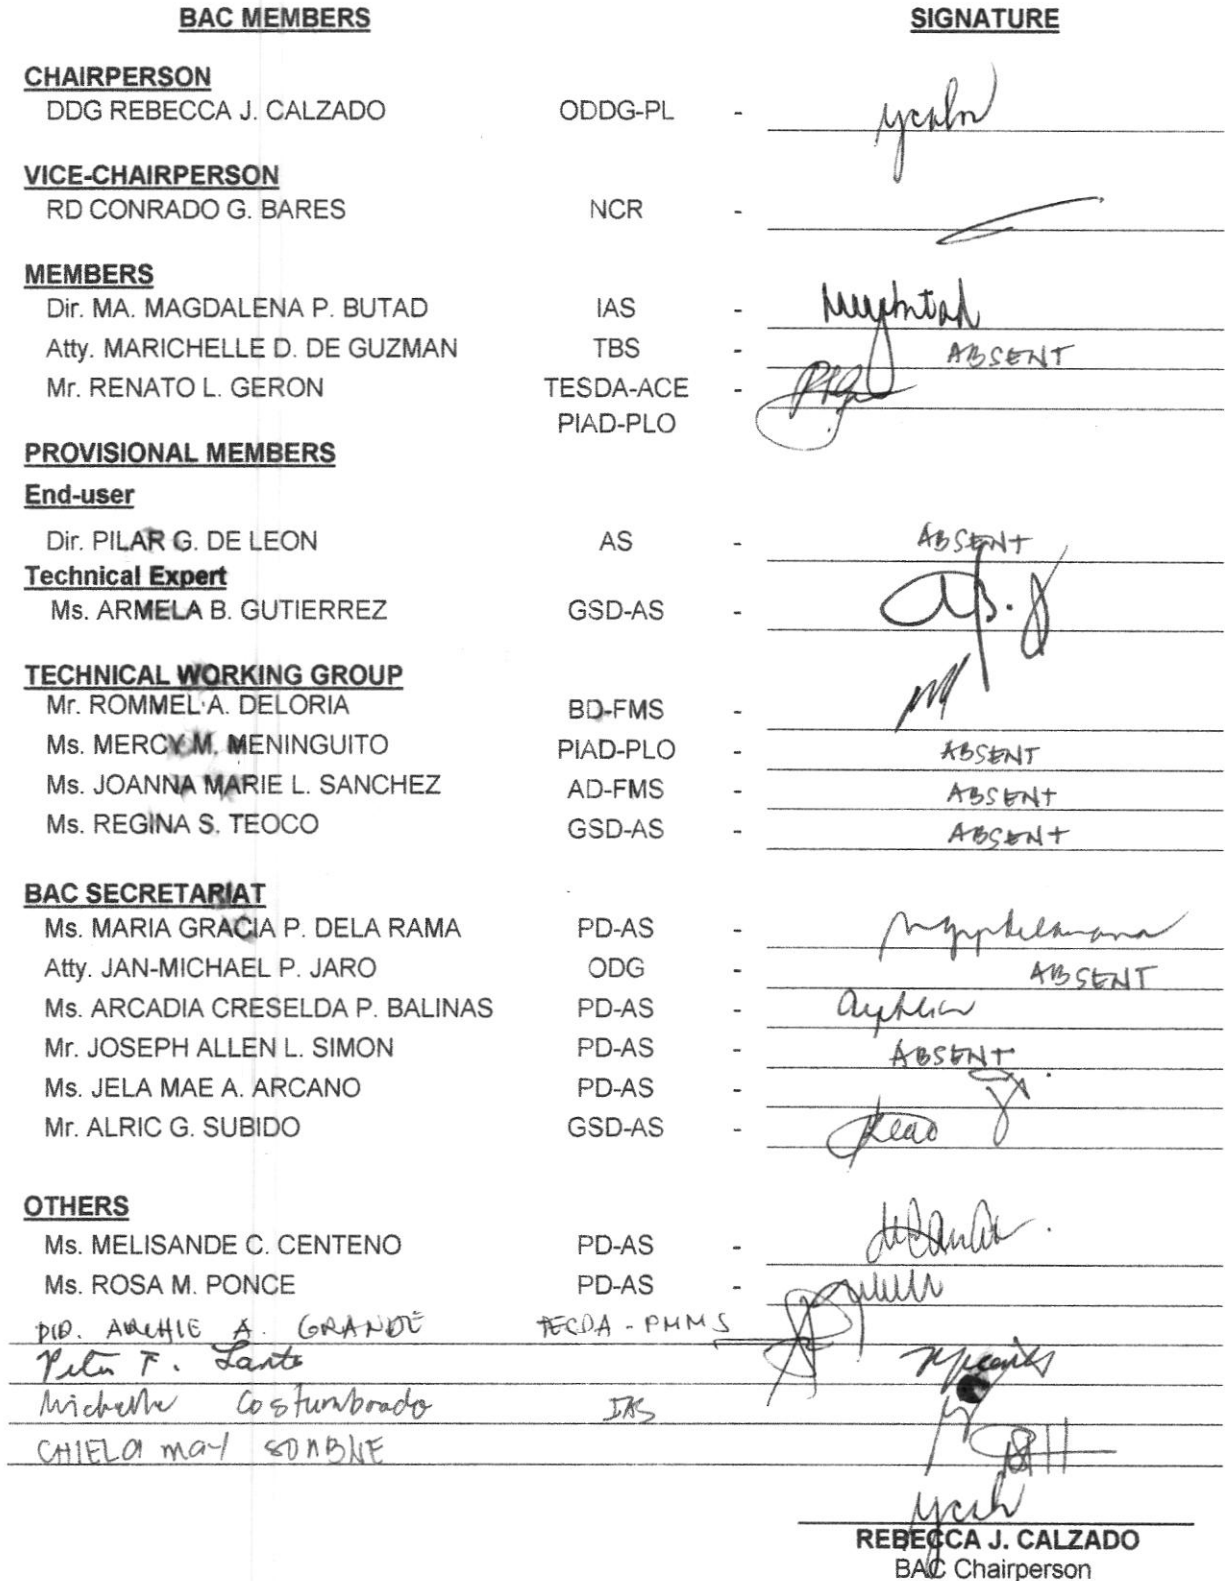 BAC MEMBERS SIGNATURE
CHAIRPERSON
DDG REBECCA J. CALZADO ODDG-PL -
VICE-CHAIRPERSON
RD CONRADO G. BARES NCR -
MEMBERS
Dir. MA. MAGDALENA P. BUTAD IAS -
Atty. MARICHELLE D. DE GUZMAN TBS - ABSENT
Mr. RENATO L. GERON TESDA-ACE -
PIAD-PLO
PROVISIONAL MEMBERS
End-user
Dir. PILAR G. DE LEON AS - ABSENT
Technical Expert
Ms. ARMELA B. GUTIERREZ GSD-AS -
TECHNICAL WORKING GROUP
Mr. ROMMEL A. DELORIA BD-FMS -
Ms. MERCY M. MENINGUITO PIAD-PLO - ABSENT
Ms. JOANNA MARIE L. SANCHEZ AD-FMS - ABSENT
Ms. REGINA S. TEOCO GSD-AS - ABSENT
BAC SECRETARIAT
Ms. MARIA GRACIA P. DELA RAMA PD-AS -
Atty. JAN-MICHAEL P. JARO ODG - ABSENT
Ms. ARCADIA CRESELDA P. BALINAS PD-AS -
Mr. JOSEPH ALLEN L. SIMON PD-AS - ABSENT
Ms. JELA MAE A. ARCANO PD-AS -
Mr. ALRIC G. SUBIDO GSD-AS -
OTHERS
Ms. MELISANDE C. CENTENO PD-AS -
Ms. ROSA M. PONCE PD-AS -
ARCHIE A. GRANDE TESDA - PMMS
Peter F.
Michelle Costumbrado IAS
CHIELA may
REBECCA J. CALZADO
BAC Chairperson